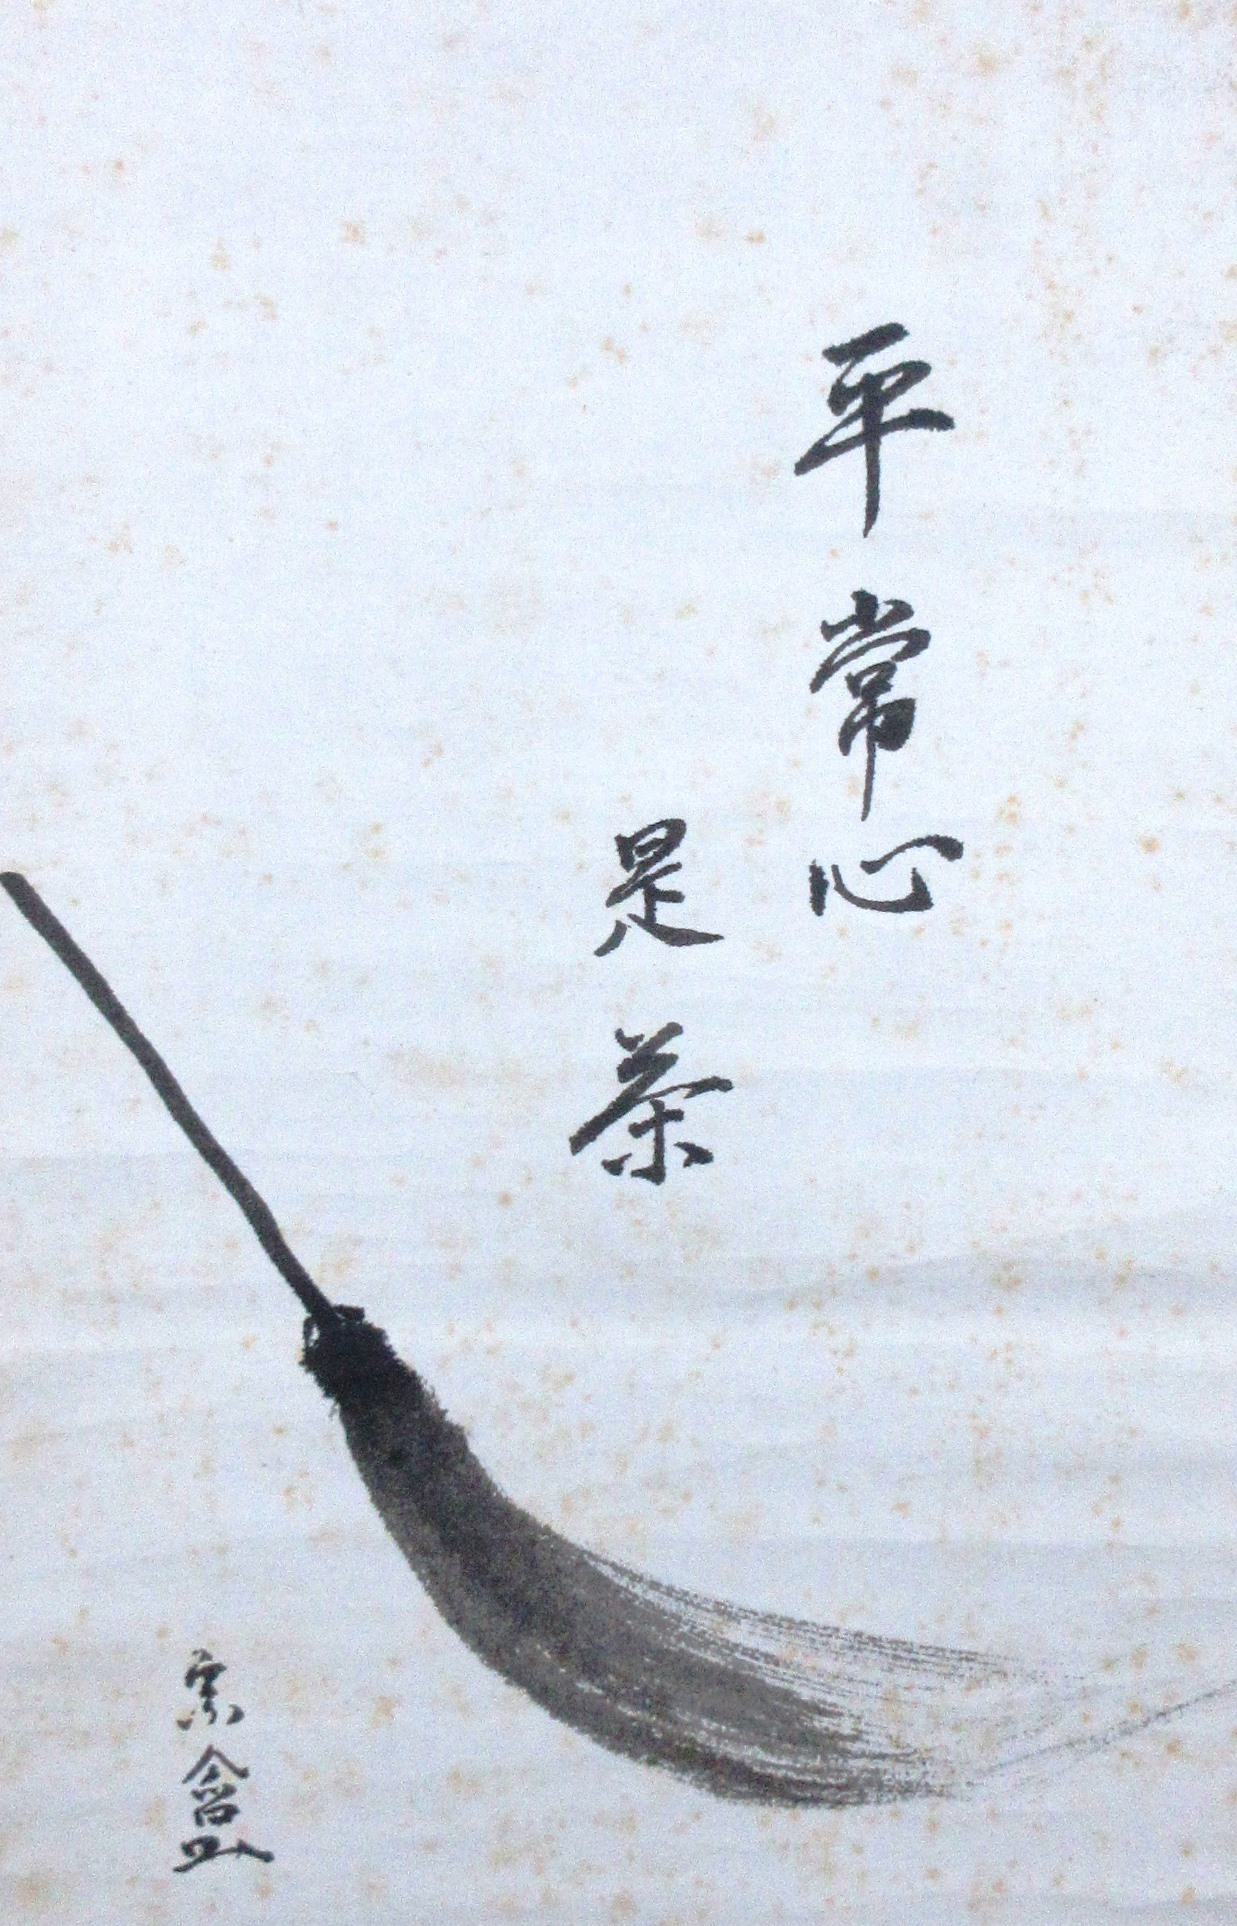 平常心
是茶
宗盒